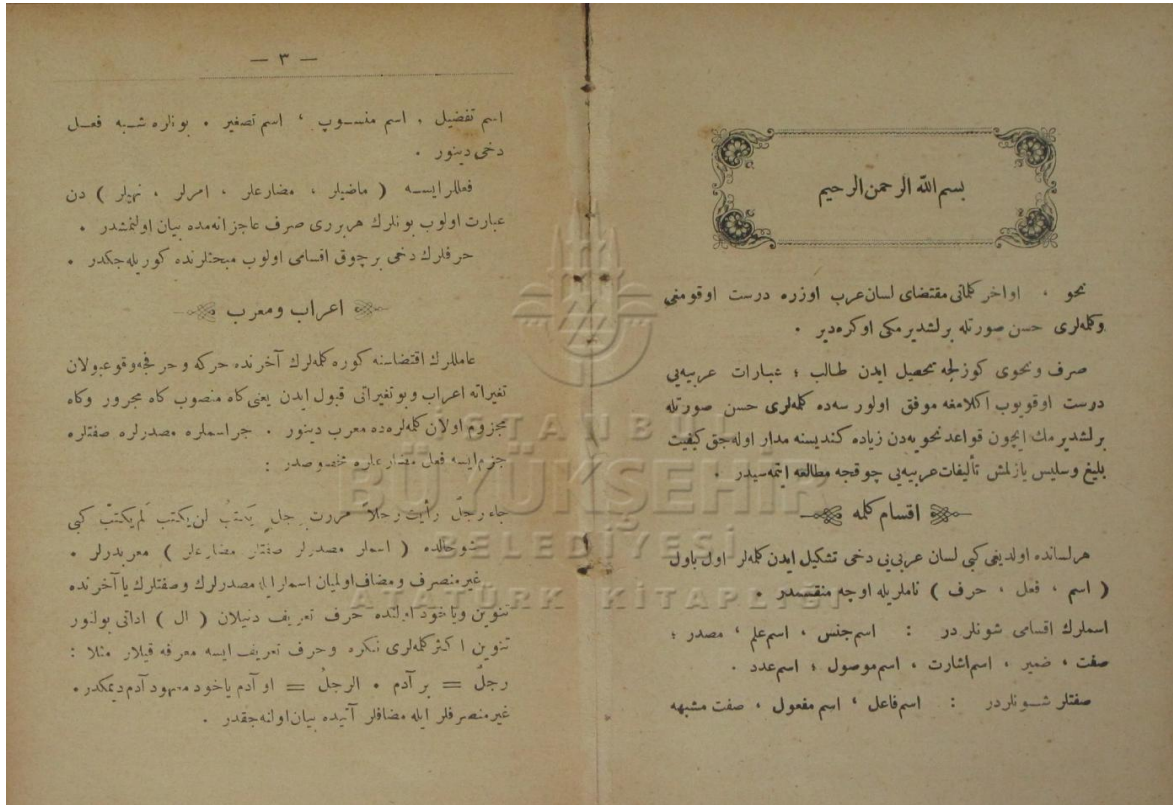 بسم الله الرحمن الرحيم
نحو ، اواخر كلماتى مقتضاى لسان عرب اوزره درست اوقومغى
وكلمه‌لرى حسن صورتله برلشديرمكى اوكره‌دير .
صرف ونحوى كوزلجه تحصيل ايدن طالب ؛ عبارات عربيه‌يى
درست اوقويوب اكلامغه موفق اولور سه‌ده كلمه‌لرى حسن صورتله
برلشديرمك ايچون قواعد نحويه‌دن زياده كنديسنه مدار اوله‌جق كيفيت
بليغ وسليس يازلمش تأليفات عربيه‌يى چوقجه مطالعه ايتمه‌سيدر .
اقسام كلمه
هر لسانده اولديغى كبى لسان عربى‌يى دخى تشكيل ايدن كلمه‌لر اول باول
( اسم ، فعل ، حرف ) ناملريله اوچه منقسمدر .
اسملرك اقسامى شونلر در : اسم جنس ، اسم علم ، مصدر ؛
صفت ، ضمير ، اسم اشارت ، اسم موصول ؛ اسم عدد .
صفتلر شونلردر : اسم فاعل ، اسم مفعول ، صفت مشبهه
— ٣ —
اسم تفضيل . اسم منسوب ، اسم تصغير . بونلره شبه فعل
دخى دينور .
فعللر ايسه ( ماضيلر ، مضارعلر ، امرلر ، نهيلر ) دن
عبارت اولوب بونلرك هربرى صرف عاجزانه‌مده بيان اولنمشدر .
حرفلرك دخى برچوق اقسامى اولوب مبحثلرنده كوريله‌جكدر .
اعراب ومعرب
عامللرك اقتضاسنه كوره كلمه‌لرك آخرنده حركه وحرفجه وقوعبولان
تغيراته اعراب وبو تغيراتى قبول ايدن يعنى كاه منصوب كاه مجرور وكاه
مجزوم اولان كلمه‌لره‌ده معرب دينور . جر اسملره مصدرلره صفتلره
جزم ايسه فعل مضارعلره مخصوصدر :
جاء رجلٌ رأيت رجلاً مررت برجلٍ يكتبُ لن يكتبَ لم يكتبْ كبى
شو حالده ( اسملر مصدرلر صفتلر مضارعلر ) معربدرلر .
غير منصرف ومضاف اولميان اسملر ايله مصدرلرك وصفتلرك يا آخرنده
تنوين وياخود اولنده حرف تعريف دنيلان ( ال ) اداتى بولنور
تنوين اكثر كلمه‌لرى نكره وحرف تعريف ايسه معرفه قيلار مثلا :
رجلٌ = بر آدم . الرجلُ = او آدم ياخود معهود آدم ديمكدر .
غير منصرفلر ايله مضافلر آتيده بيان اوانه‌جقدر .
İSTANBUL
BÜYÜKŞEHİR
BELEDİYESİ
ATATÜRK KİTAPLIĞI